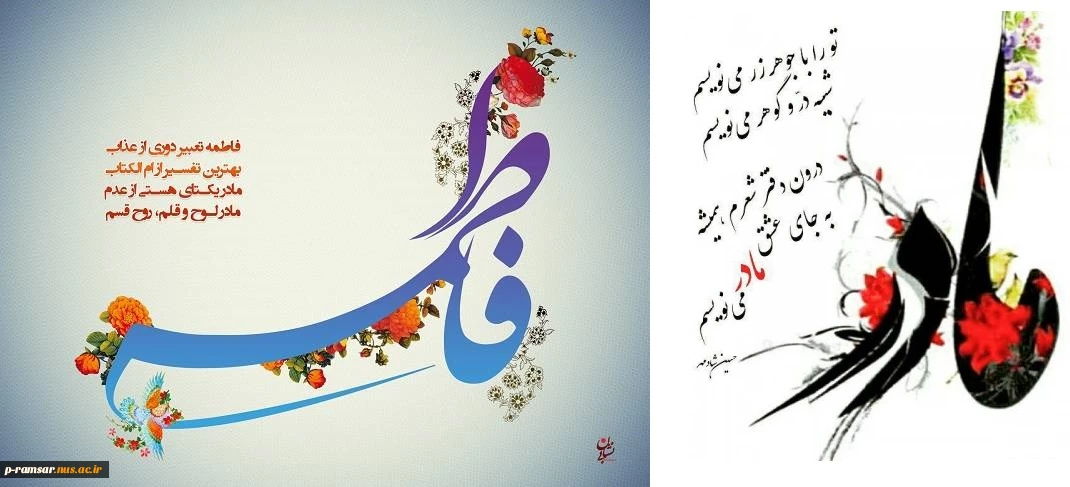 فاطمه تعبیر دوری از عذاب
بهترین تفسیر از ام الکتاب
مادر یکتای هستی از عدم
مادر لوح و قلم، روح قسم
فاطمه
p-ramsar.nus.ac.ir
تو را با جوهر زر می نویسم
شبیه در و گوهر می نویسم
درون دفتر شعرم همیشه
به جای عشق
مادر
می نویسم
حسین شادمهر
مادر